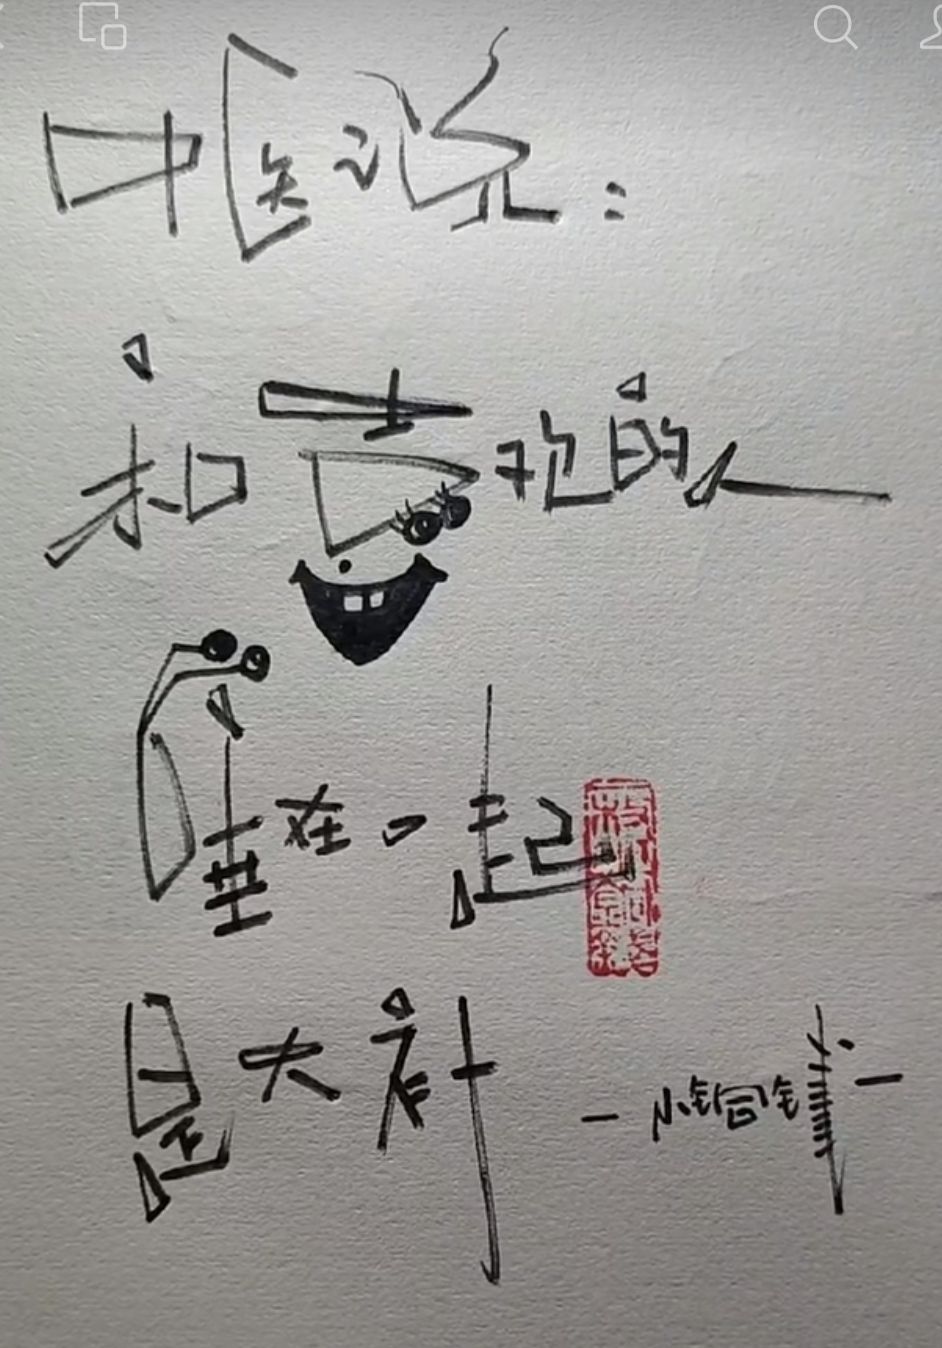 中医说:
和喜欢的人
睡在一起
是大补
—小铜钱—